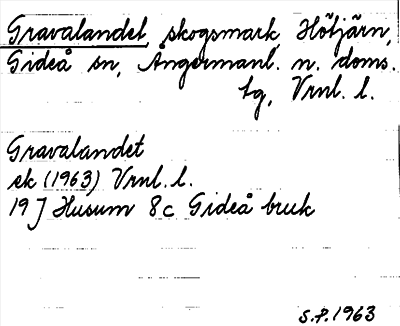 Gravalandet, skogsmark Hötjärn,
Gideå sn, Ångermanl. n. doms.
tg, Vrnl. l.
Gravalandet
ek (1963) Vrnl. l.
19 J Husum 8c Gideå bruk
S.P. 1963